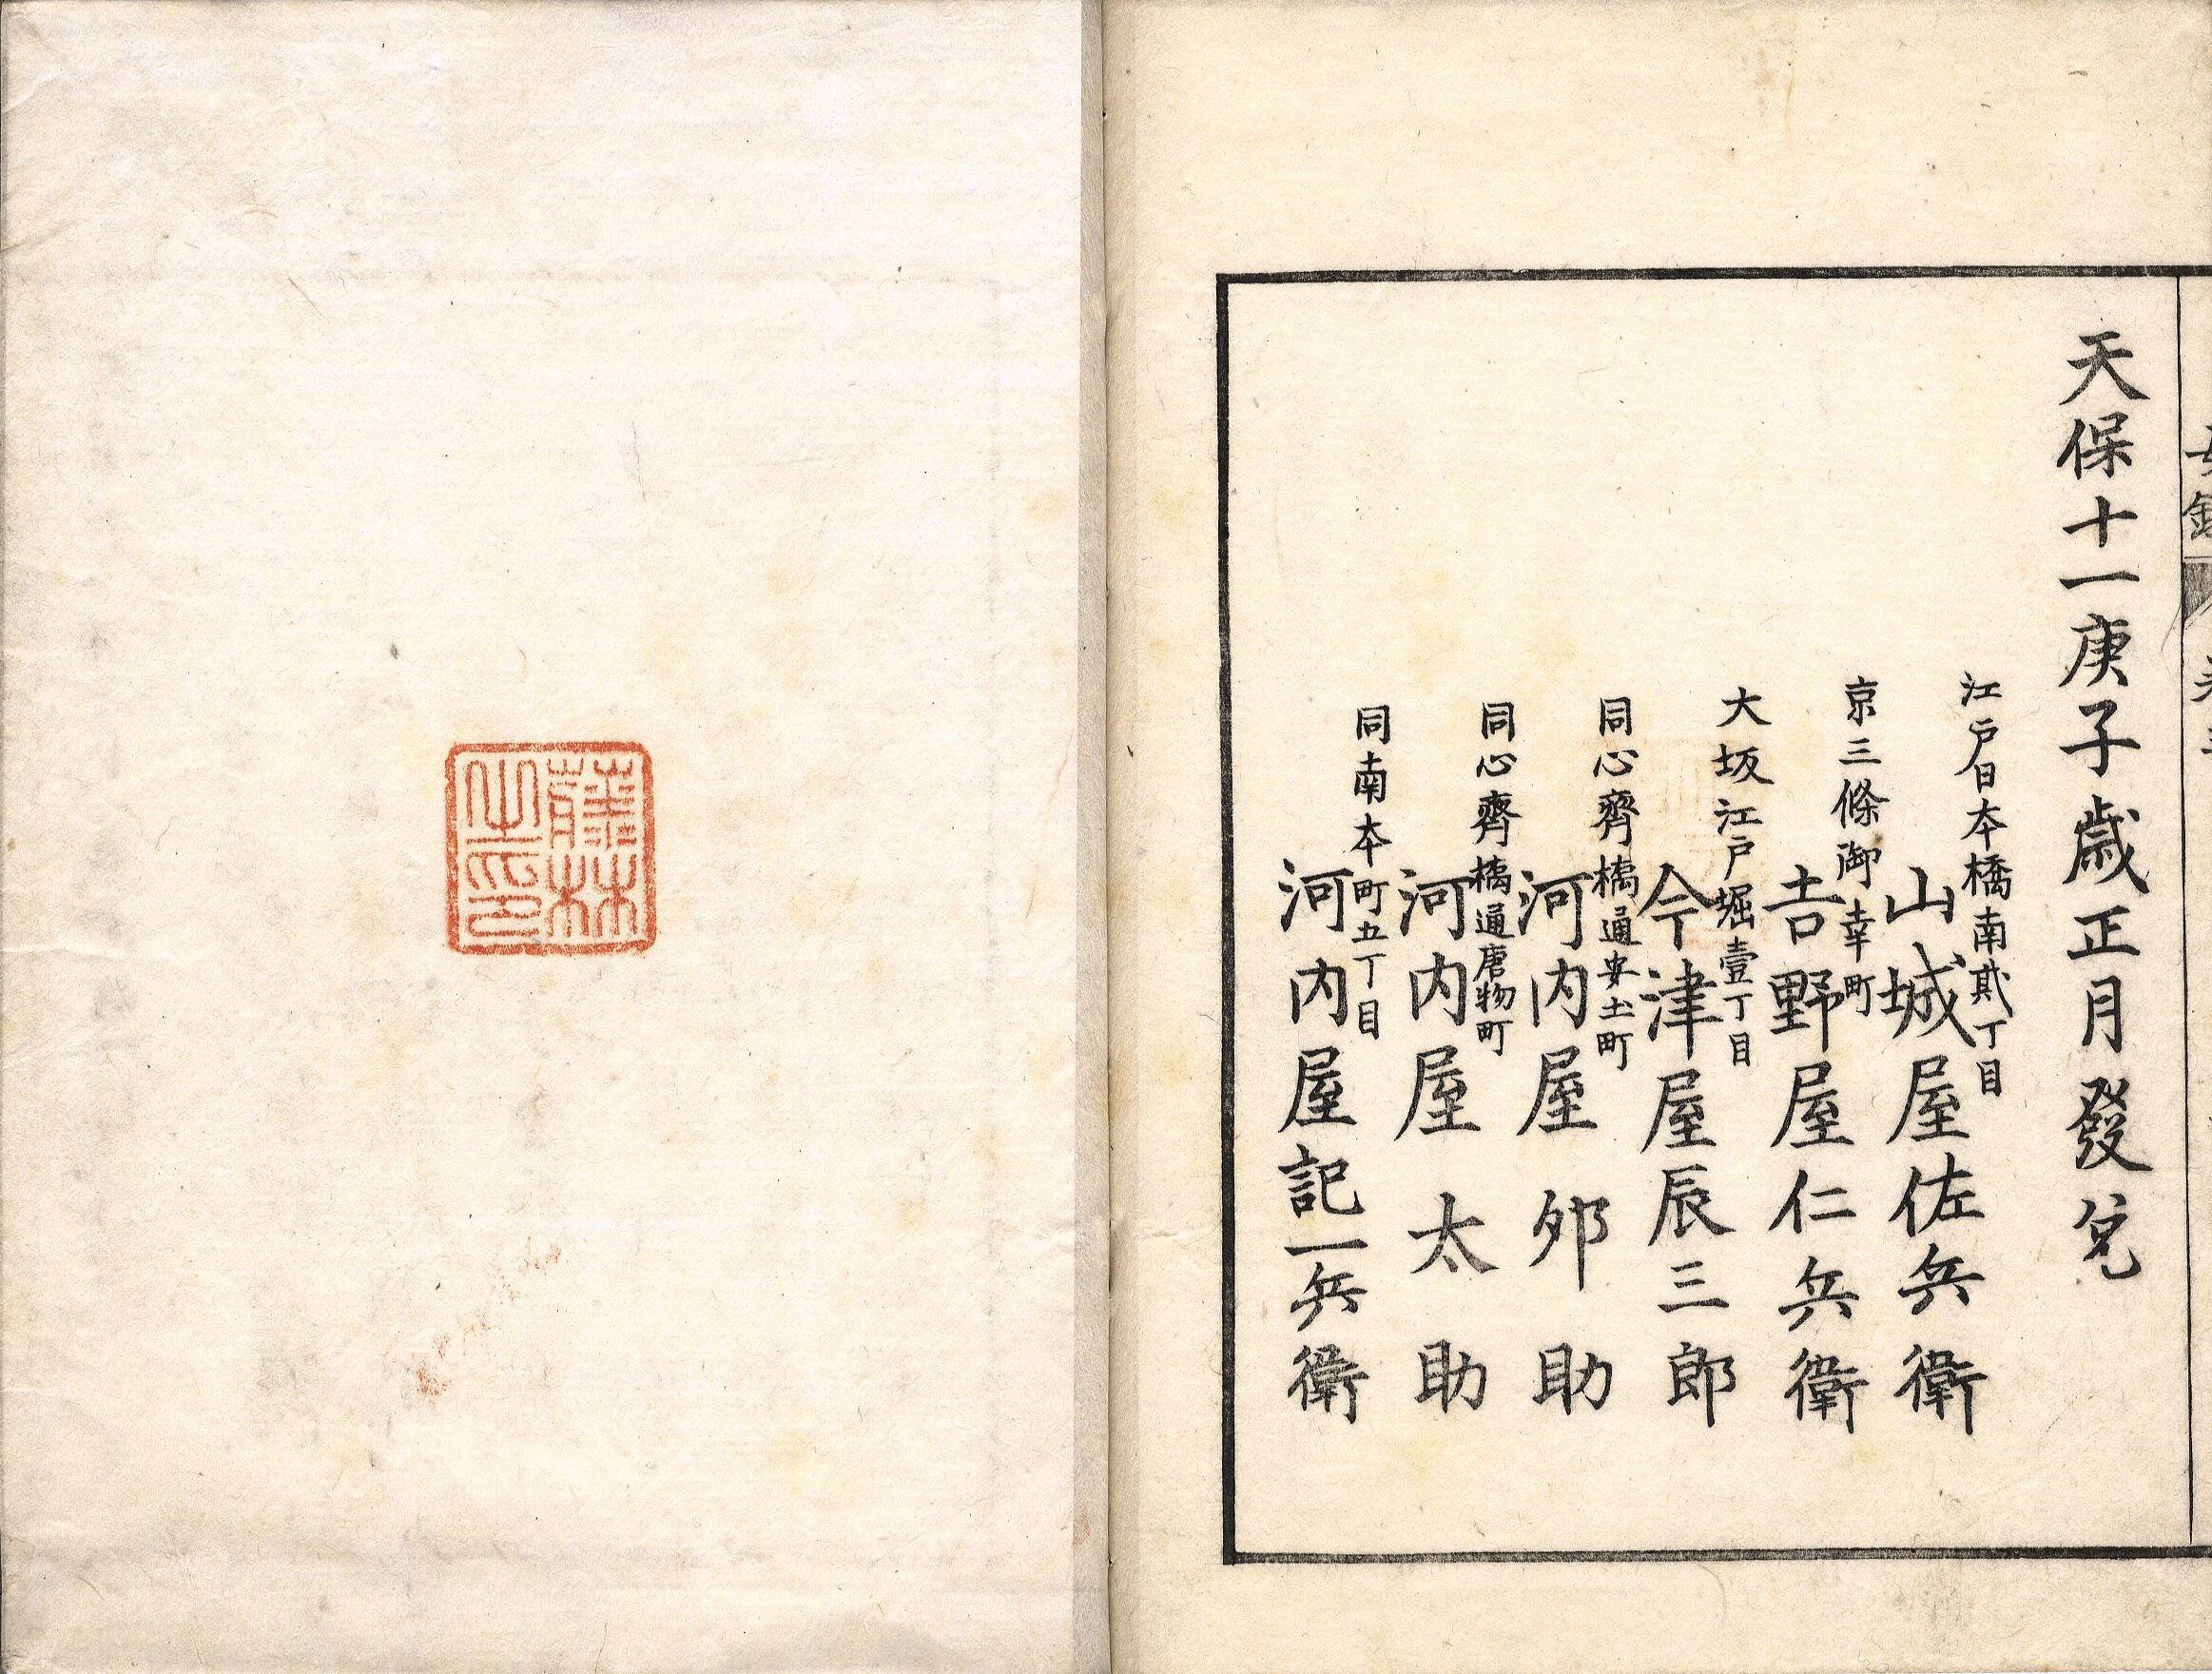 天保十一庚子歳正月發兌
江戸日本橋南貮丁目
山城屋佐兵衛
京三條御幸町
吉野屋仁兵衛
大坂江戸堀壹丁目
今津屋辰三郎
同心齊橋通安土町
河内屋夘助
同心齊橋通唐物町
河内屋太助
同南本町五丁目
河内屋記一兵衛
藤林
之印